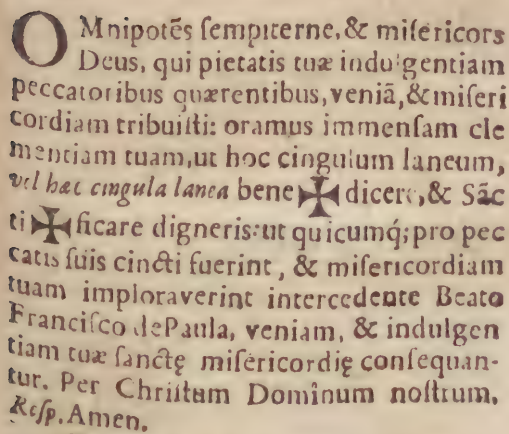 OMnipotẽs ſempiterne, & miſericors
Deus, qui pietatis tuæ indulgentiam
peccatoribus quærentibus, veniã, & miſeri
cordiam tribuiſti: oramus immenſam cle
mentiam tuam, ut hoc cingulum laneum,
vel hæc cingula lanea bene ✠ dicere, & Sãc
ti ✠ ficare digneris: ut quicumq́; pro pec
catis ſuis cincti fuerint, & miſericordiam
tuam imploraverint intercedente Beato
Franciſco de Paula, veniam, & indulgen
tiam tuæ ſanctę miſericordię conſequan-
tur. Per Chriſtum Dominum noſtrum.
Reſp. Amen.